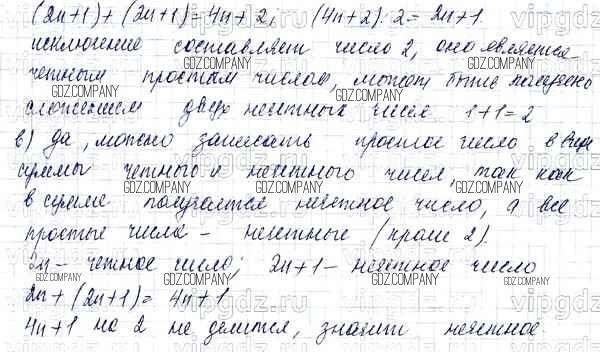 (2n+1)+(2n+1)=4n+2; (4n+2):2=2n+1.
исключение составляет число 2, оно является
четным простым числом, может быть получено
сложением двух нечетных чисел 1+1=2
в) да, можно записать простое число в виде
суммы четного и нечетного чисел, так как
в сумме получается нечетное число, а все
простые числа – нечетные (кроме 2).
2n – четное число; 2n+1 – нечетное число
2n+(2n+1)=4n+1
4n+1 на 2 не делится, значит нечетное.
GDZ.COMPANY
vipgdz.ru